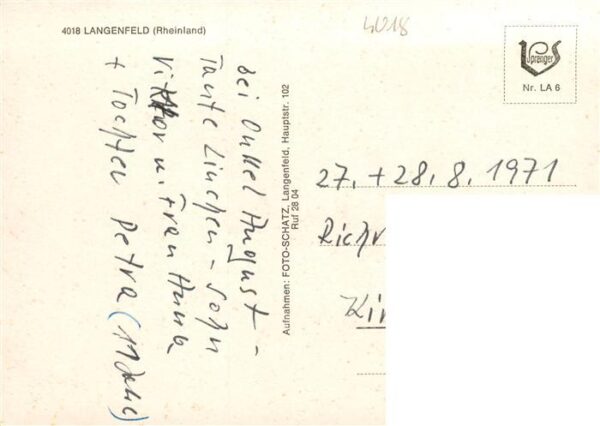 4018 LANGENFELD (Rheinland)
4018
Sprenger
Nr. LA 6
bei Onkel August -
Tante Linchen - Sohn
Viktor u. Frau Anna
+ Tochter Petra (11 Jahre)
Aufnahmen: FOTO-SCHATZ, Langenfeld, Hauptstr. 102
Ruf 28 04
27. + 28. 8. 1971